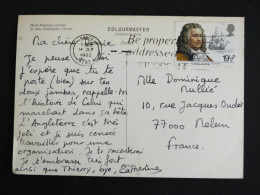 COLOURMASTER
Be properly
addressed
19½P
Ma chère
Je pense
J'espère que tu te
portes bien sur tes
deux jambes rappelle-toi
l'histoire de celui qui
marchait dans sa tête
L'Angleterre c'est très
joli et je suis
travailler pour une
organisation. Je te raconterai
Je t'embrasse très fort
ainsi que Thierry, bye, Catherine
Mlle Dominique
10, rue Jacques
77000 Melun
France.